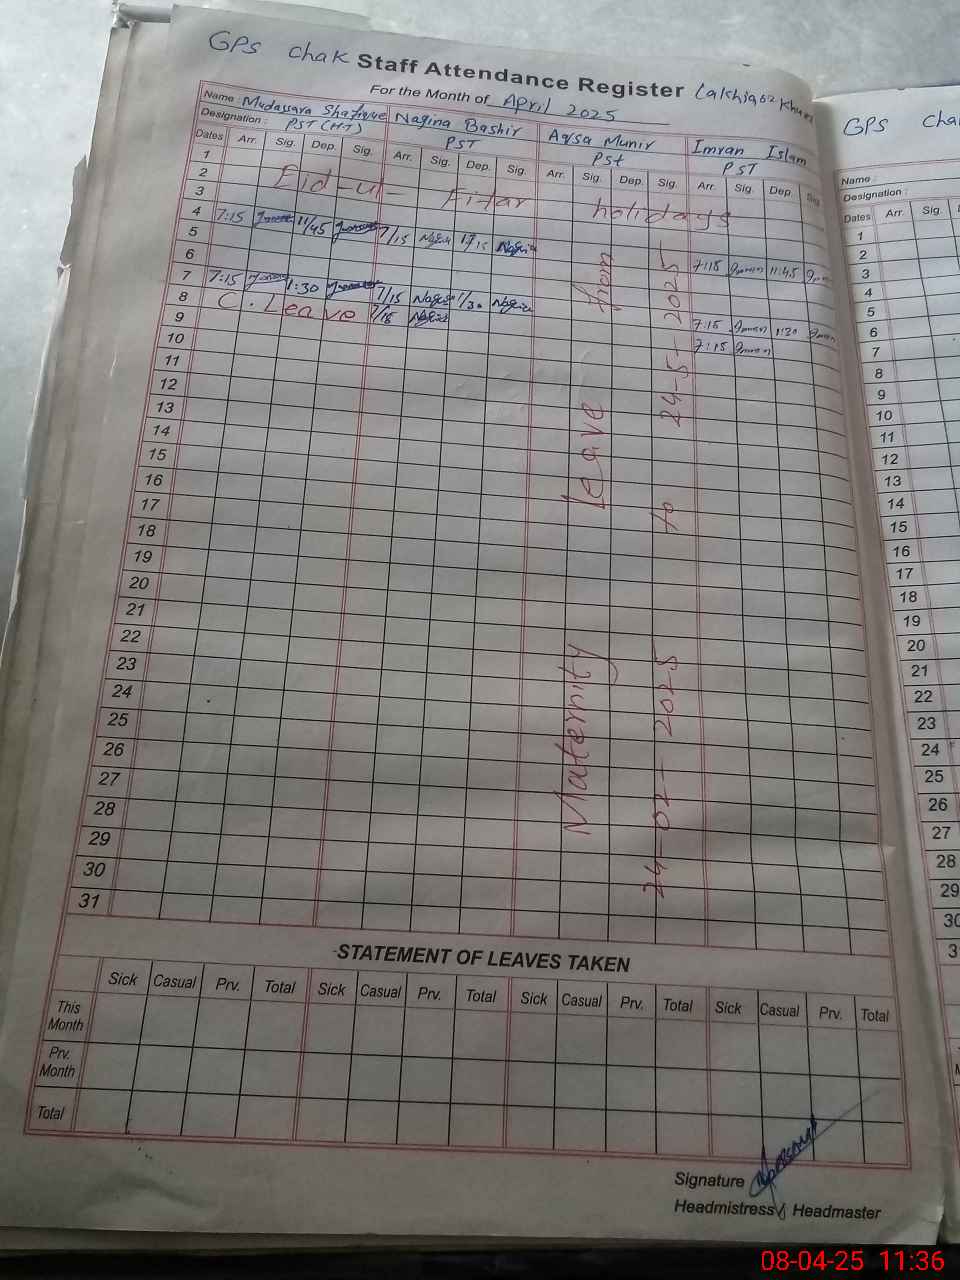 GPS chak Staff Attendance Register Lakhia 62 Khurd
For the Month of April 2025
Name : Mudassara Shafique Nagina Bashir Aqsa Munir Imran Islam
Designation : PST (HT) PST PSt PST
Dates Arr. Sig. Dep. Sig. Arr. Sig. Dep. Sig. Arr. Sig. Dep. Sig. Arr. Sig. Dep. Sig.
1
2 Eid-ul- Fitar holidays
3
4 7:15 11/45 7/15 Nagina Nagina 7:15 Imran 11:45
5
6
7 7:15 1:30 7/15 Nagina 1/30 Nagina 7:15 Imran 1:30 Imran
8 C. Leave 7/15 Nagina 7:15 Imran
9
10
11
12
13
14
15
16
17
18
19
20
21
22
23
24
25
26
27
28
29
30
31
Maternity Leave from
24-02-2025 to 24-5-2025
STATEMENT OF LEAVES TAKEN
Sick Casual Prv. Total Sick Casual Prv. Total Sick Casual Prv. Total Sick Casual Prv. Total
This Month
Prv. Month
Total
Signature
Headmistress / Headmaster
GPS
Name :
Designation :
Dates Arr. Sig.
1
2
3
4
5
6
7
8
9
10
11
12
13
14
15
16
17
18
19
20
21
22
23
24
25
26
27
28
29
30
08-04-25 11:36